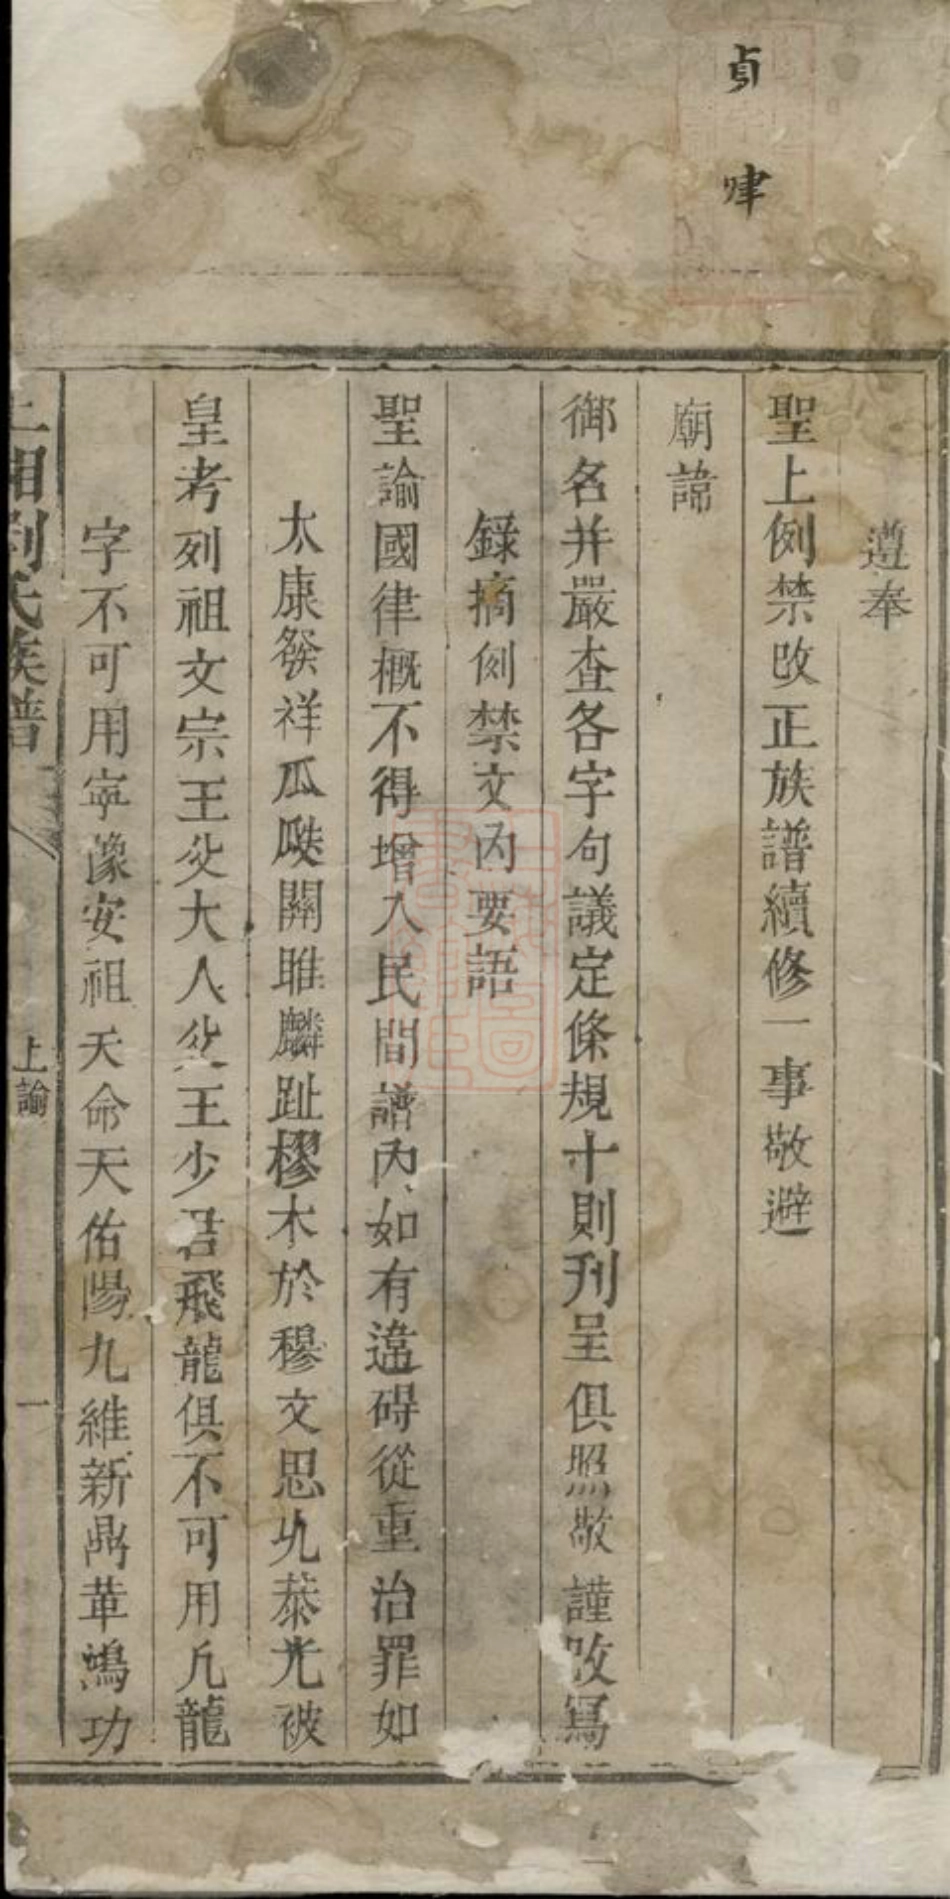 貞
律
遵奉
聖上例禁改正族譜續修一事敬避
廟諱
御名并嚴查各字句議定條規十則刊呈俱照敬謹改寫
錄摘例禁文內要語
聖諭國律概不得增入民間譜內如有違碍從重治罪如
太康發祥瓜瓞關雎麟趾樛木於穆文思允恭光被
皇考列祖文宗王父大人父王少君飛龍俱不可用凡龍
字不可用寧豫安祖天命天佑陽九維新鼎革鴻功
上湘劉氏族譜
上諭
一